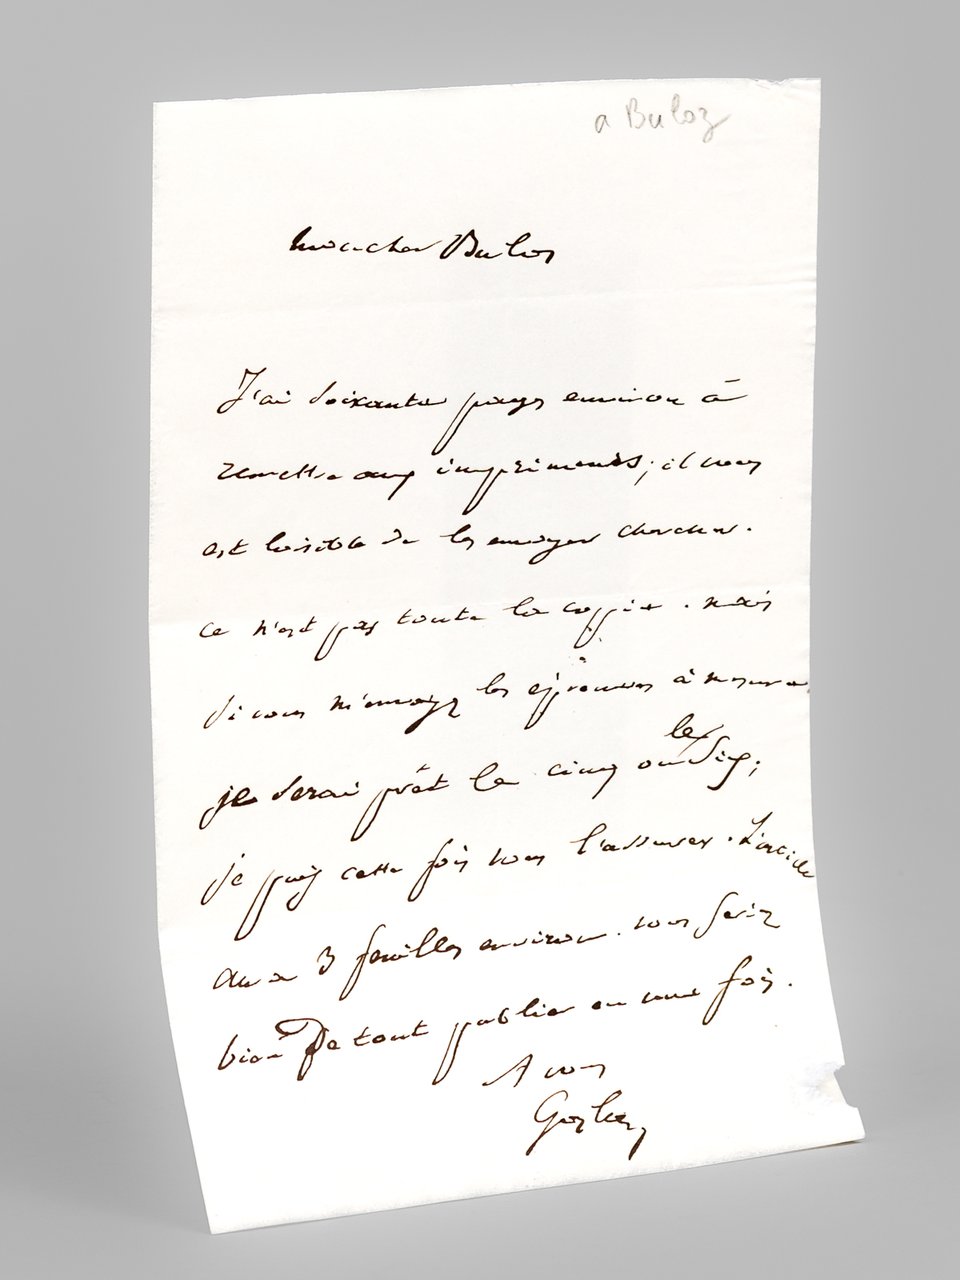 a Buloz
Mon cher Buloz
J'ai soixante pages environ à
remettre aux imprimeurs; il vous
est loisible de les envoyer chercher.
ce n'est pas toute la copie. mais
si vous m'envoyez les épreuves à mesure,
je serai prêt le cinq ou le six;
je puis cette fois vous l'assurer. L'article
aura 3 feuilles environ. vous feriez
bien de tout publier en une fois.
A vous
Gozlan